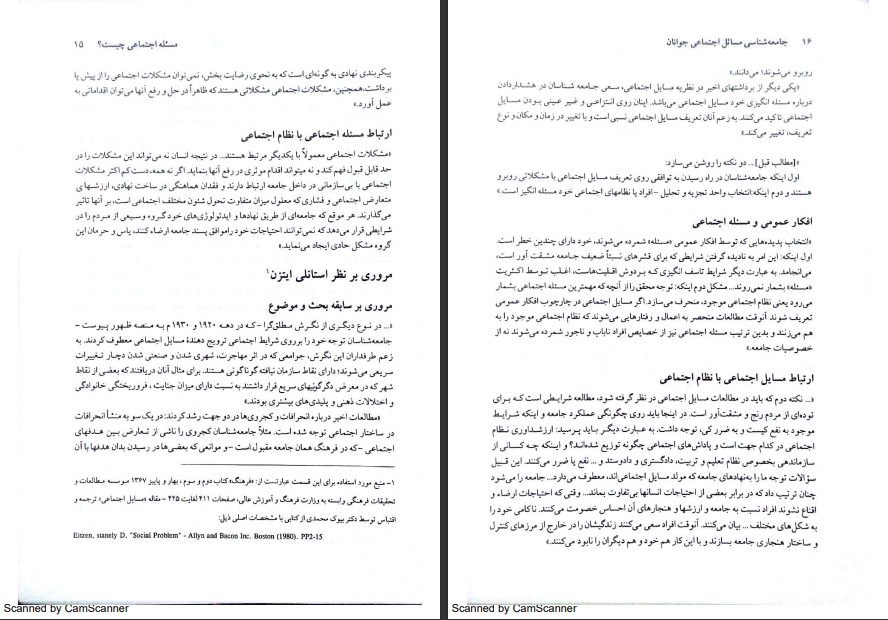 مسئله اجتماعی چیست؟ ۱۵
پیکربندی نهادی به گونه‌ای است که به نحوی رضایت بخش، نمی‌توان مشکلات اجتماعی را از پیش پا
برداشت.همچنین، مشکلات اجتماعی مشکلاتی هستند که ظاهراً در حل و رفع آنها می‌توان اقداماتی به
عمل آورد.»
ارتباط مسئله اجتماعی با نظام اجتماعی
«مشکلات اجتماعی معمولاً با یکدیگر مرتبط هستند... در نتیجه انسان نه می‌تواند این مشکلات را در
حد قابل قبول فهم کند و نه میتواند اقدام موثری در رفع آنها بنماید. اگر نه همه، دست کم اکثر مشکلات
اجتماعی با بی‌سازمانی در داخل جامعه ارتباط دارند و فقدان هماهنگی در ساخت نهادی، ارزشهای
متعارض اجتماعی و فشاری که معلول میزان متفاوت تحول شئون مختلف اجتماعی است، بر آنها تاثیر
می‌گذارند. هر موقع که جامعه‌ای از طریق نهادها و ایدئولوژی‌های خود گروه وسیعی از مردم را در
شرایطی قرار می‌دهد که نمی‌توانند احتیاجات خود راموافق پسند جامعه ارضاء کنند، یاس و حرمان این
گروه مشکل حادی ایجاد می‌نماید.»
مروری بر نظر استانلی ایتزن۱
مروری بر سابقه بحث و موضوع
«... در نوع دیگری از نگرش مطلق‌گرا – که در دهه ۱۹۲۰ و ۱۹۳۰ م به منصه ظهور پیوست –
جامعه‌شناسان توجه خود را بر روی شرایط اجتماعی ترویج دهندهٔ مسایل اجتماعی معطوف کردند. به
زعم طرفداران این نگرش، جوامعی که در اثر مهاجرت، شهری شدن و صنعتی شدن دچار تغییرات
سریعی می‌شوند؛ دارای نقاط سازمان نیافته گوناگونی هستند. برای مثال آنان دریافتند که بعضی از نقاط
شهر که در معرض دگرگونیهای سریع قرار داشتند به نسبت دارای میزان جنایت، فروریختگی خانوادگی
و اختلالات ذهنی و پلیدی‌های بیشتری بودند.»
«مطالعات اخیر درباره انحرافات و کجروی‌ها در دو جهت رشد کردند: در یک سو به منشأ انحرافات
در ساختار اجتماعی توجه شده است. مثلاً جامعه‌شناسان کجروی را ناشی از تعارض بین هدفهای
اجتماعی –که در فرهنگ همان جامعه مقبول است– و موانعی که بعضی‌ها در رسیدن بدان هدفها با آن
۱- منبع مورد استفاده برای این قسمت عبارتست از: «فرهنگ» کتاب دوم و سوم، بهار و پاییز ۱۳۶۷ موسسه مطالعات و
تحقیقات فرهنگی وابسته به وزارت فرهنگ و آموزش عالی، صفحات ۴۱۱ لغایت ۴۲۵ – مقاله «مسایل اجتماعی» ترجمه و
اقتباس توسط دکتر بیوک محمدی از کتابی با مشخصات اصلی ذیل:
Eitzen, stanely D. "Social Problem" - Allyn and Bacon Inc. Boston (1980). PP2-15
Scanned by CamScanner
۱۶ جامعه‌شناسی مسائل اجتماعی جوانان
روبرو می‌شوند؛ می‌دانند.»
«یکی دیگر از برداشتهای اخیر در نظریه مسایل اجتماعی، سعی جامعه شناسان در هشداردادن
درباره مسئله انگیزی خود مسایل اجتماعی می‌باشد. اینان روی انتزاعی و غیر عینی بودن مسایل
اجتماعی تاکید می‌کنند. به زعم آنان تعریف مسایل اجتماعی نسبی است و با تغییر در زمان و مکان و نوع
تعریف، تغییر می‌کند.»
«[مطالب قبل]... دو نکته را روشن می‌سازد:
اول اینکه جامعه‌شناسان در راه رسیدن به توافقی روی تعریف مسایل اجتماعی با مشکلاتی روبرو
هستند و دوم اینکه:انتخاب واحد تجزیه و تحلیل – افراد یا نظامهای اجتماعی خود مسئله انگیز است.»
افکار عمومی و مسئله اجتماعی
«انتخاب پدیده‌هایی که توسط افکار عمومی «مسئله» شمرده می‌شوند، خود دارای چندین خطر است.
اول اینکه: این امر به نادیده گرفتن شرایطی که برای قشرهای نسبتاً ضعیف جامعه مشقت آور است،
می‌انجامد. به عبارت دیگر شرایط تاسف انگیزی کـه بـردوش اقلیت‌هاست، اغلب توسط اکثریت
«مسئله» بشمار نمی‌روند... مشکل دوم اینکه: توجه محقق را از آنچه که مهمترین مسئله اجتماعی بشمار
می‌رود یعنی نظام اجتماعی موجود، منحرف می‌سازد.اگر مسایل اجتماعی در چارچوب افکار عمومی
تعریف شوند آنوقت مطالعات منحصر به اعمال و رفتارهایی می‌شوند که نظام اجتماعی موجود را به
هم می‌زنند و بدین ترتیب مسئله اجتماعی نیز از خصایص افراد ناباب و ناجور شمرده می‌شوند نه از
خصوصیات جامعه.»
ارتباط مسایل اجتماعی با نظام اجتماعی
«... نکته دوم که باید در مطالعات مسایل اجتماعی در نظر گرفته شود، مطالعه شرایطی است کـه بـرای
توده‌ای از مردم رنج و مشقت‌آور است. در اینجا باید روی چگونگی عملکرد جامعه و اینکه شرایط
موجود به نفع کیست و به ضرر کی، توجه داشت. به عبارت دیگـر بـاید پرسید: ارزشداوری نظـام
اجتماعی در کدام جهت است و پاداش‌های اجتماعی چگونه توزیع شده‌اند؟ و اینکه چه کسانی از
سازماندهی بخصوص نظام تعلیم و تربیت، دادگستری و دادوستد و ... نفع یا ضرر می‌کنند. این قبیل
سؤالات توجه ما را به‌نهادهای جامعه که مولد مسایل اجتماعی‌اند، معطوف می‌دارد... جامعه را می‌شود
چنان ترتیب داد که در برابر بعضی از احتیاجات انسانها بی‌تفاوت بماند... وقتی که احتیاجات ارضاء و
اقناع نشوند افراد نسبت به جامعه و ارزشها و هنجارهای آن احساس خصومت می‌کنند. ناکامی خود را
به شکل‌های مختلف ... بیان می‌کنند. آنوقت افراد سعی می‌کنند زندگیشان را در خارج از مرزهای کنترل
و ساختار هنجاری جامعه بسازند و با این کار هم خود و هم دیگران را نابود می‌کنند.»
Scanned by CamScanner